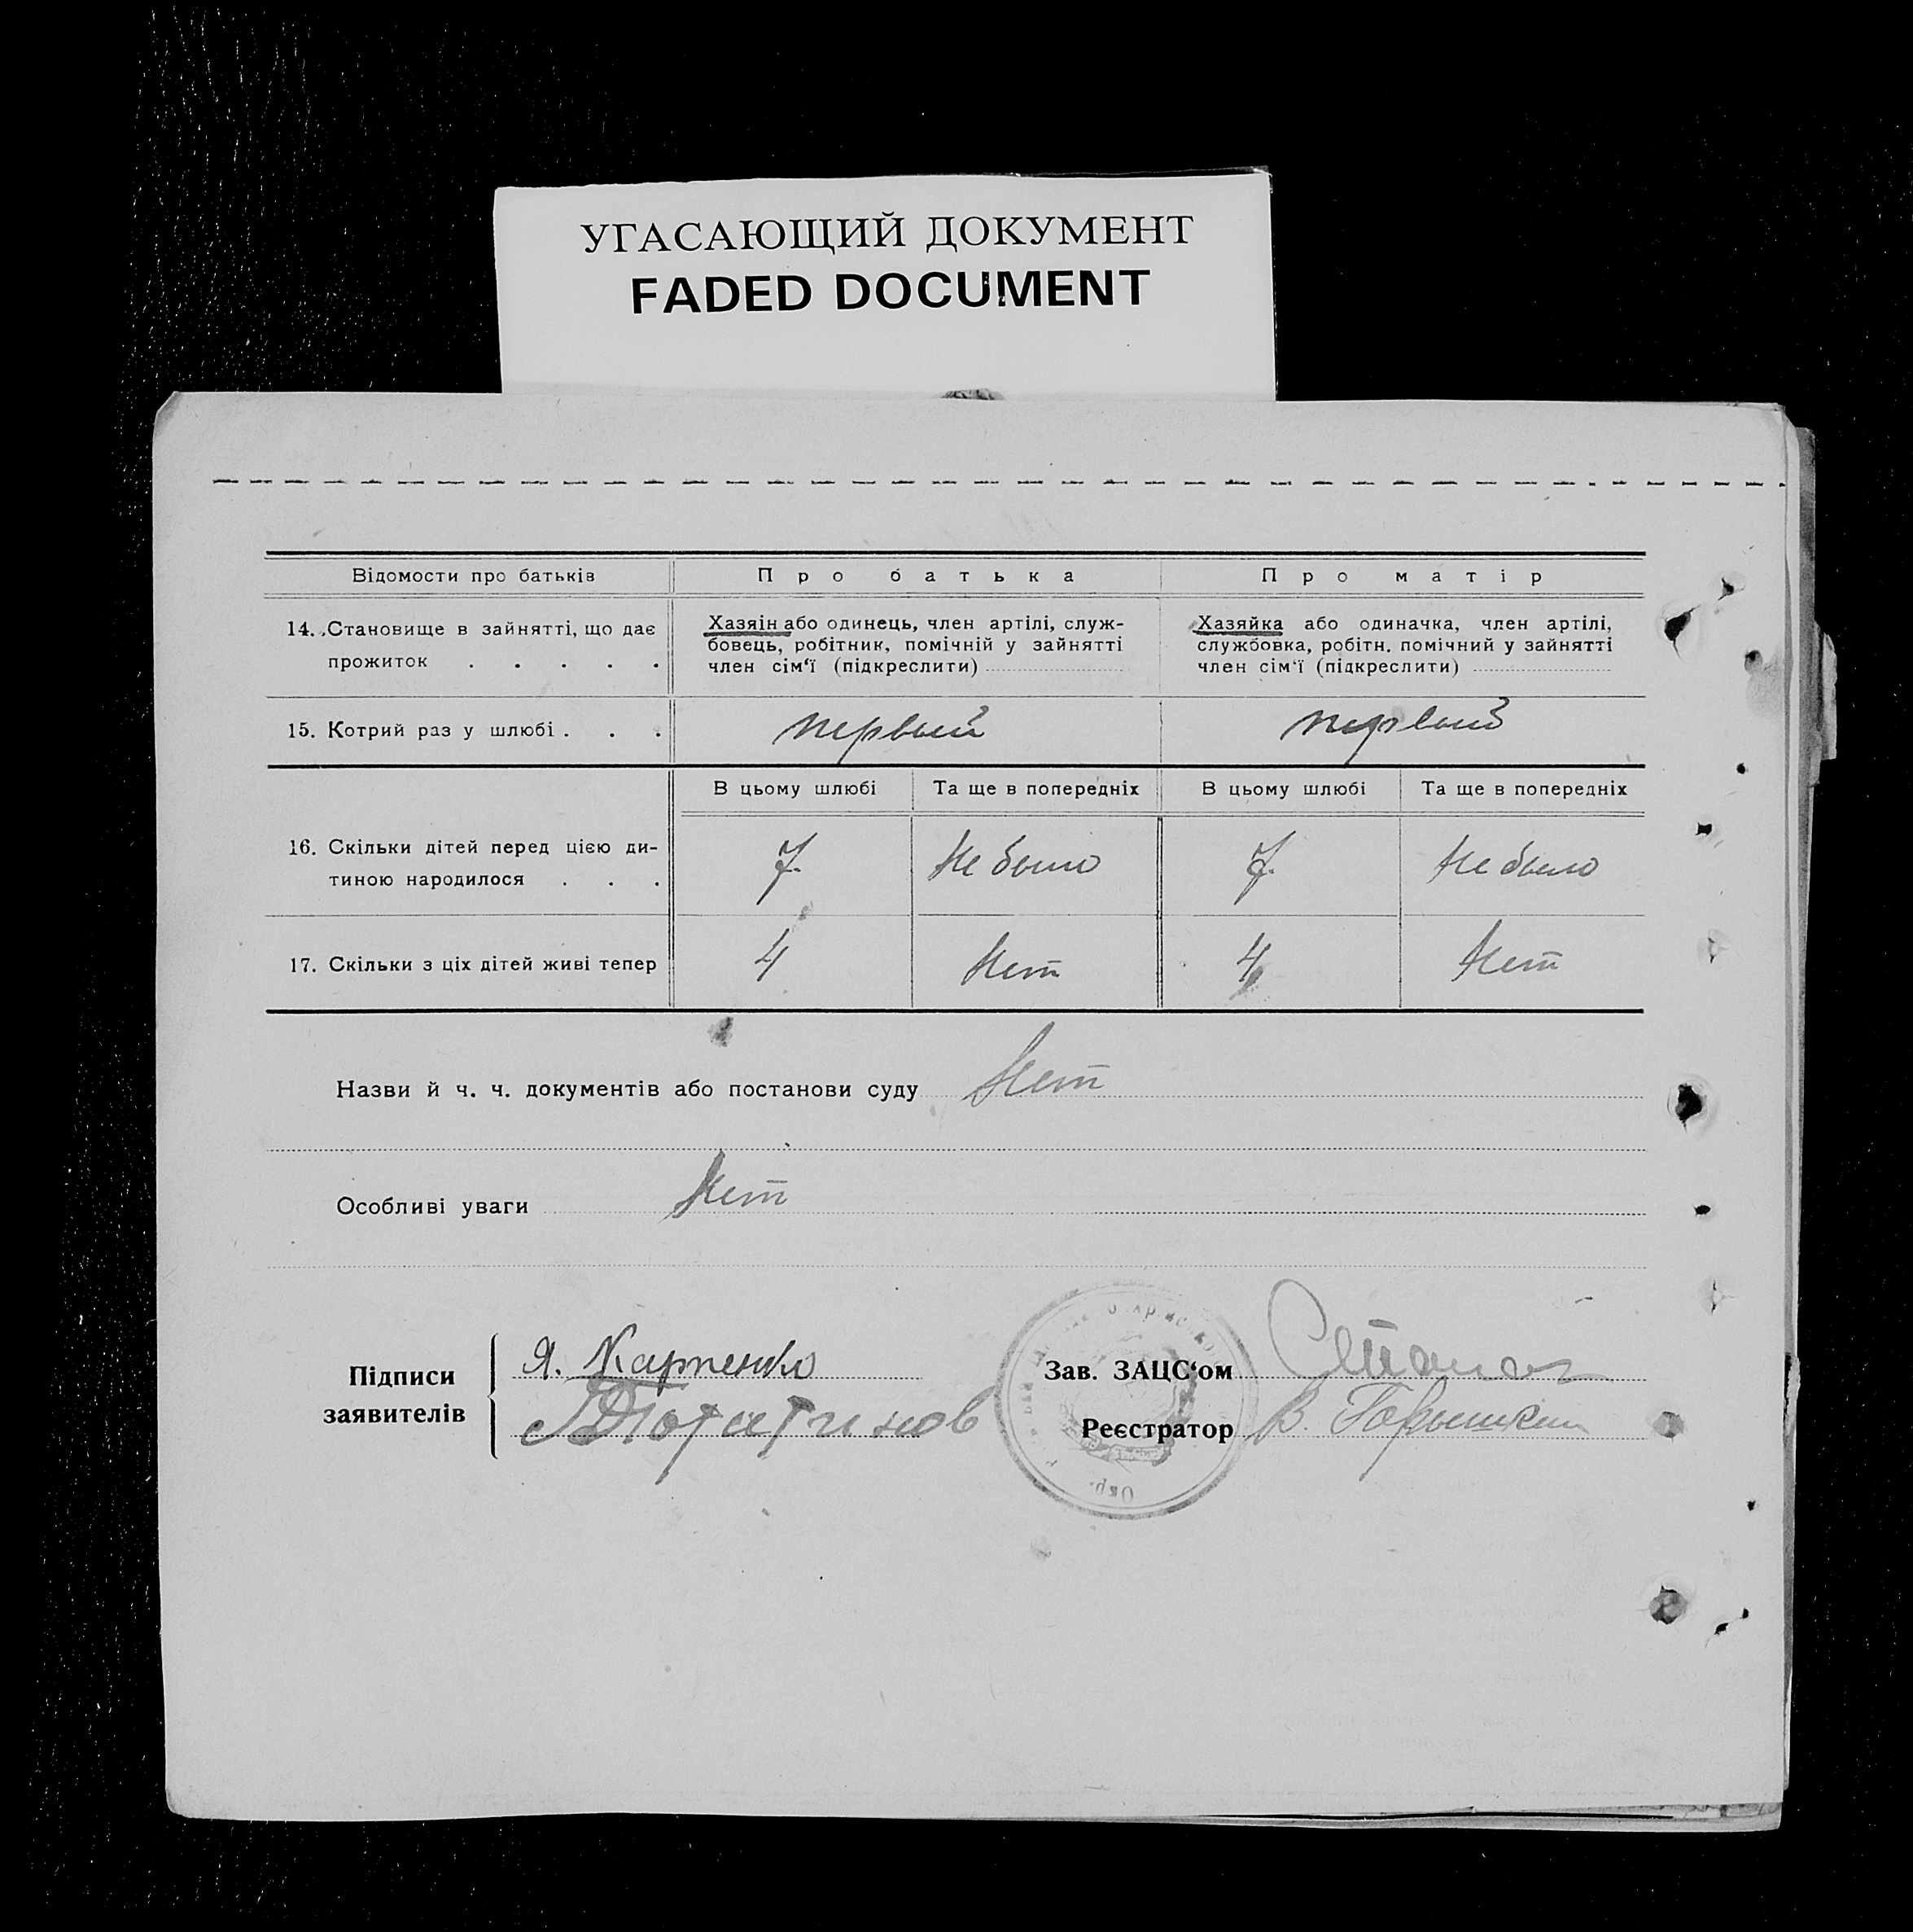 УГАСАЮЩИЙ ДОКУМЕНТ
FADED DOCUMENT
Відомости про батьків
Про батька
Про матір
14. Становище в зайнятті, що дає
прожиток . . . . .
Хазяін або одинець, член артілі, служ-
бовець, робітник, помічній у зайнятті
член сім'ї (підкреслити)
Хазяйка або одиначка, член артілі,
службовка, робітн. помічний у зайнятті
член сім'ї (підкреслити)
15. Котрий раз у шлюбі . . .
первый
первый
В цьому шлюбі
Та ще в попередніх
В цьому шлюбі
Та ще в попередніх
16. Скільки дітей перед цією ди-
тиною народилося . . .
7.
Не было
7.
Не было
17. Скільки з ціх дітей живі тепер
4
Нет
4
Нет
Назви й ч. ч. документів або постанови суду Нет
Особливі уваги Нет
Підписи
заявителів
Я. Карпенко
Зав. ЗАЦС'ом
Реєстратор В.